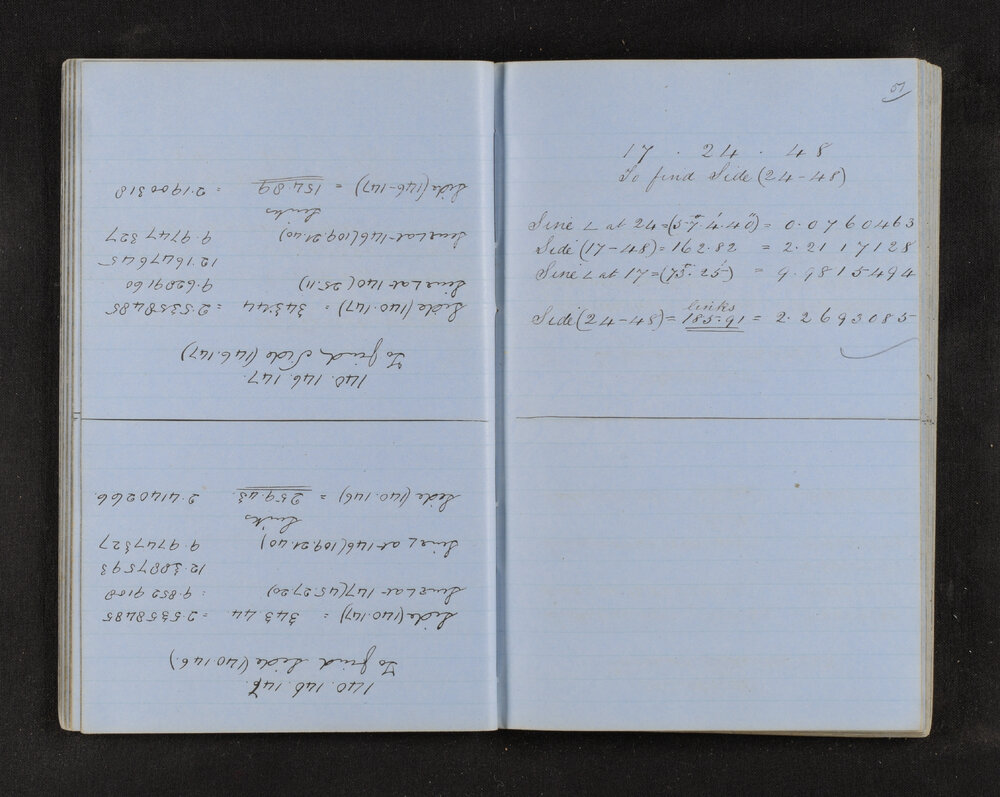 140.146.147
To find Side (140.146.)
Side (140.147) = 343.44 = 2.5358485
Sine ∠ at 147 (45.27.20) = 9.8529108
12.3887593
Sine ∠ at 146 (109.21.40) 9.9747327
Links
Side (140.146) = 259.43 2.4140266
140.146.147.
To find Side (146.147)
Side (140.147) = 343.44 = 2.5358485
Sine ∠ at 140 (25.11) 9.6289160
12.1647645
Sine ∠ at 146 (109.21.40) 9.9747327
Links
Side (146-147) = 154.89 = 2.1900318
51
17 . 24 . 48
To find Side (24-48)
Sine ∠ at 24 = (57° 4' 40") = 0.0760463
Side (17-48) = 162.82 = 2.2117128
Sine ∠ at 17 = (73° 25') = 9.9815494
links
Side (24-48) = 185.91 = 2.2693085